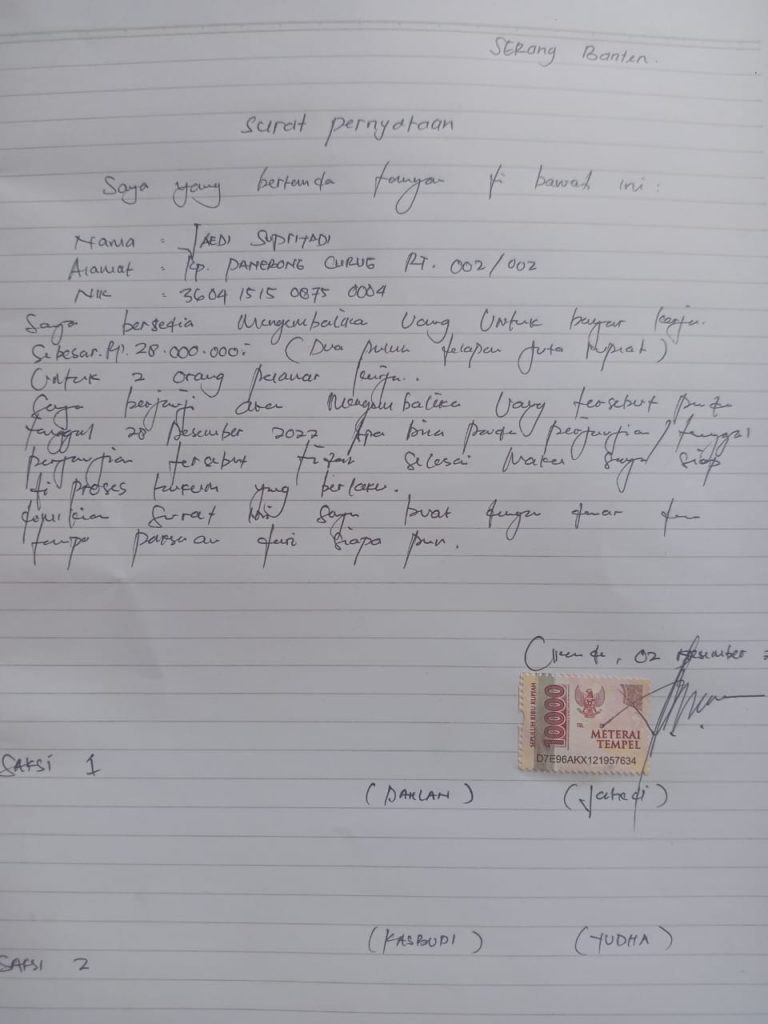 SERang Banten.
Surat pernyataan
Saya yang bertanda tangan di bawah ini :
Nama : JAEDI SUPRIYADI
Alamat : Kp. PANERONG CURUG RT. 002/002
NIK : 3604 1515 0875 0004
Saya bersedia Mengembalika Uang Untuk bayar kerja.
Sebesar.Rp. 28.000.000:- (Dua puluh delapan Juta Rupiah)
Untuk 2 orang pelamar kerja..
Saya berjanji akan Mengembalika Uang tersebut pada
tanggal 28 Desember 2022 Apa bila pada perjanjian/tanggal
perjanjian tersebut tidak selesai Maka saya siap
di proses hukum yang berlaku.
demikian Surat ini saya buat dengan sadar dan
tanpa paksaan dari siapa pun.
02 Desember
SEPULUH RIBU RUPIAH
10000
METERAI
TEMPEL
D7E96AKX121957634
SAKSI 1
(DAHLAN) (Jahedi)
(KASBUDI) (YUDHA)
SAKSI 2